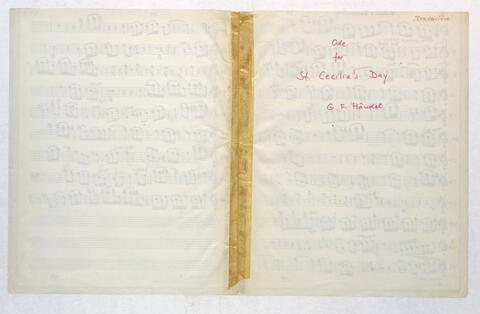 Ode
for
St. Cecilia's Day
G F Händel